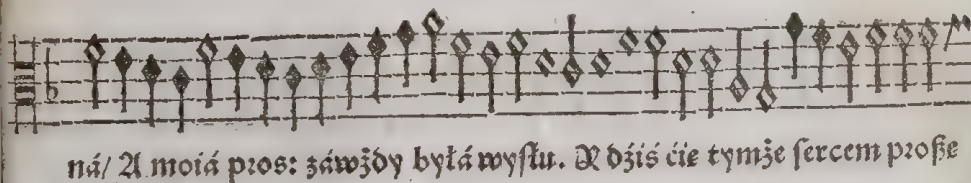 ná/ A moiá pros: záwżdy byłá wysłu. A dźiś ćie tymże sercem proßę